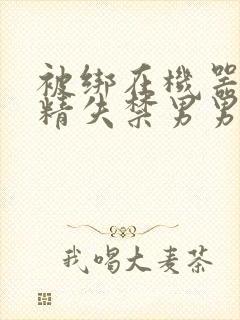 被绑在機器
精失禁男男
我喝大麦茶